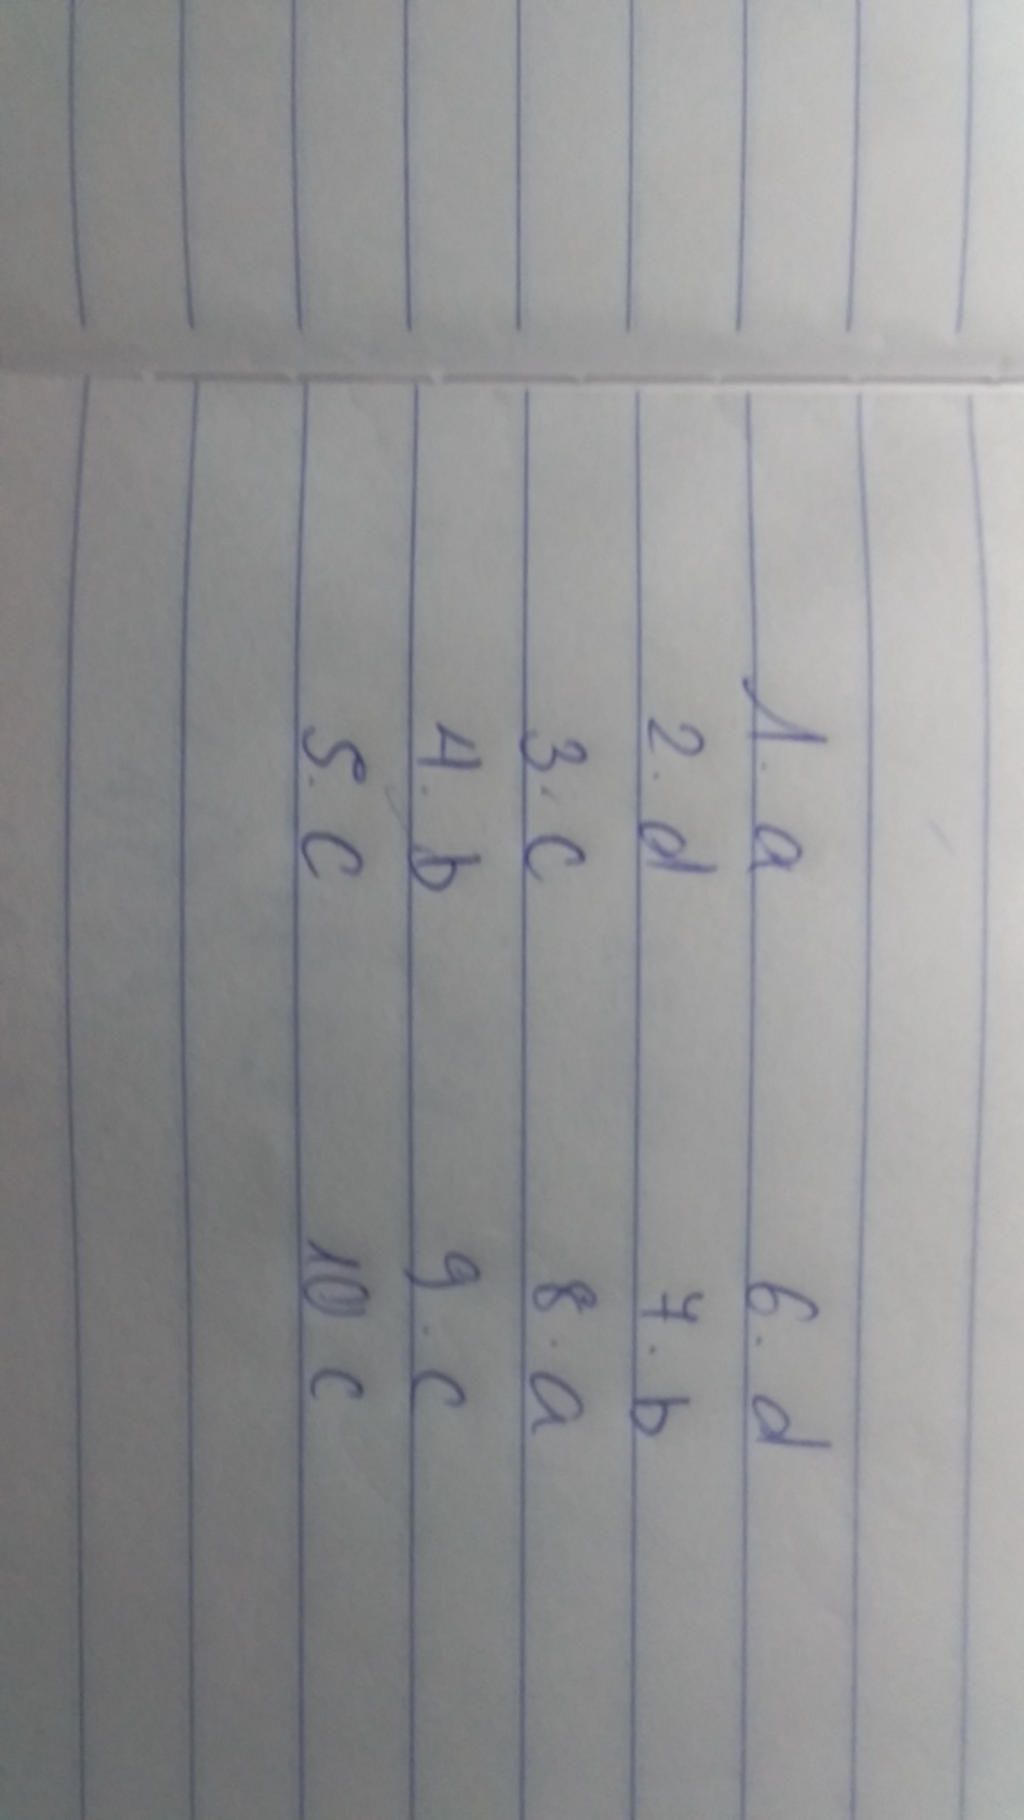 1. a 6. d
2. d 7. b
3. c 8. a
4. b 9. c
5. c 10 c